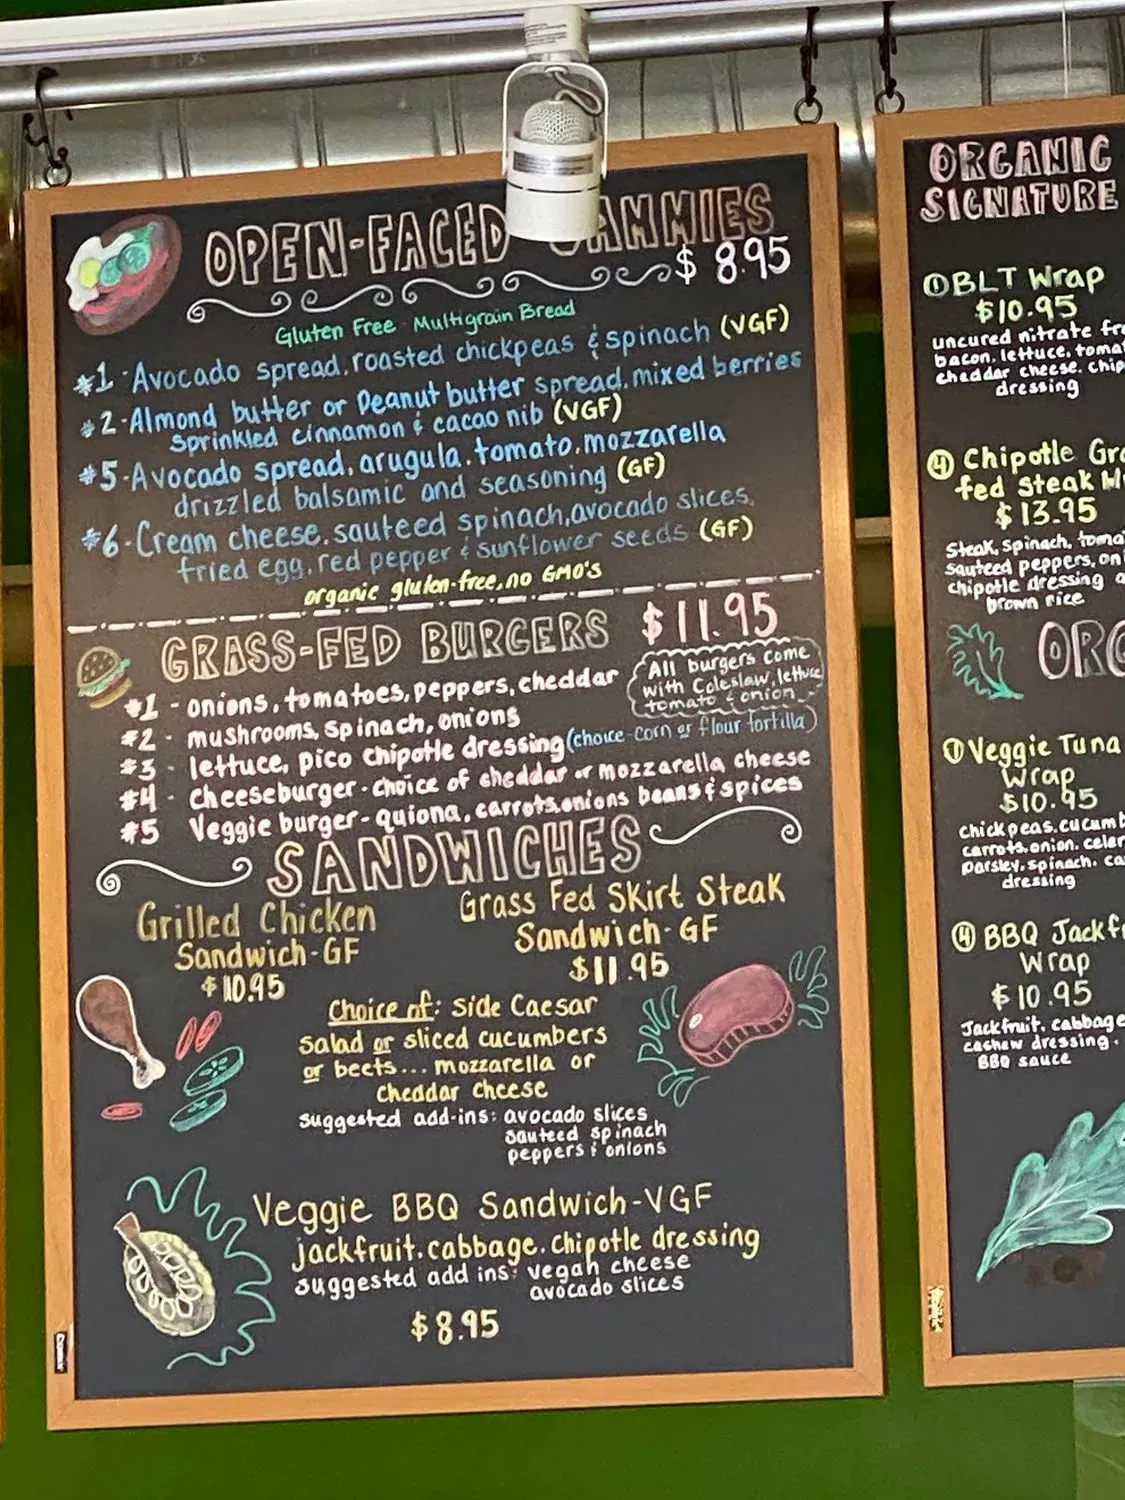 OPEN-FACED SAMMIES
$ 8.95
Gluten Free Multigrain Bread
#1 - Avocado spread, roasted chickpeas & spinach (VGF)
#2 - Almond butter or Peanut butter spread, mixed berries
sprinkled cinnamon & cacao nib (VGF)
#5 - Avocado spread, arugula, tomato, mozzarella
drizzled balsamic and seasoning (GF)
#6 - Cream cheese, sauteed spinach, avocado slices,
fried egg, red pepper & sunflower seeds (GF)
organic gluten-free, no GMO'S
GRASS-FED BURGERS $11.95
All burgers come
with Coleslaw, lettuce
tomato & onion
#1 - onions, tomatoes, peppers, cheddar
#2 - mushrooms, spinach, onions
#3 - lettuce, pico chipotle dressing (choice-corn or flour tortilla)
#4 - cheeseburger - choice of cheddar or mozzarella cheese
#5 Veggie burger - quiona, carrots, onions beans & spices
SANDWICHES
Grilled Chicken
Sandwich-GF
$10.95
Grass Fed Skirt Steak
Sandwich-GF
$11.95
Choice of: side Caesar
salad or sliced cucumbers
or beets... mozzarella or
cheddar cheese
suggested add-ins: avocado slices
sauteed spinach
peppers & onions
Veggie BBQ Sandwich-VGF
jackfruit, cabbage, chipotle dressing
suggested add ins: vegan cheese
avocado slices
$8.95
ORGANIC
SIGNATURE
① BLT Wrap
$10.95
uncured nitrate
bacon, lettuce,
cheddar cheese,
dressing
④ Chipotle
fed Steak
$13.95
Steak, spinach,
sauteed peppers,
chipotle dressing
brown rice
① Veggie Tuna
Wrap
$10.95
chickpeas,
carrots, onion,
parsley, spinach,
dressing
④ BBQ
Wrap
$10.95
Jackfruit, cabbage
cashew dressing,
BBQ sauce